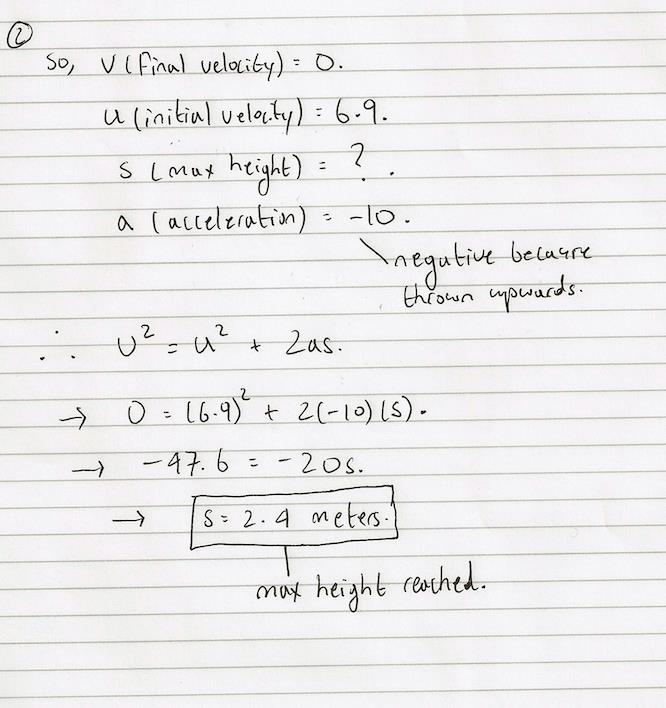 ②
So, V (final velocity) = 0.
u (initial velocity) = 6.9.
s (max height) = ?.
a (acceleration) = -10.
negative because
thrown upwards.
∴ v² = u² + 2as.
→ 0 = (6.9)² + 2(-10)(s).
→ -47.6 = -20s.
→ s = 2.4 meters.
max height reached.